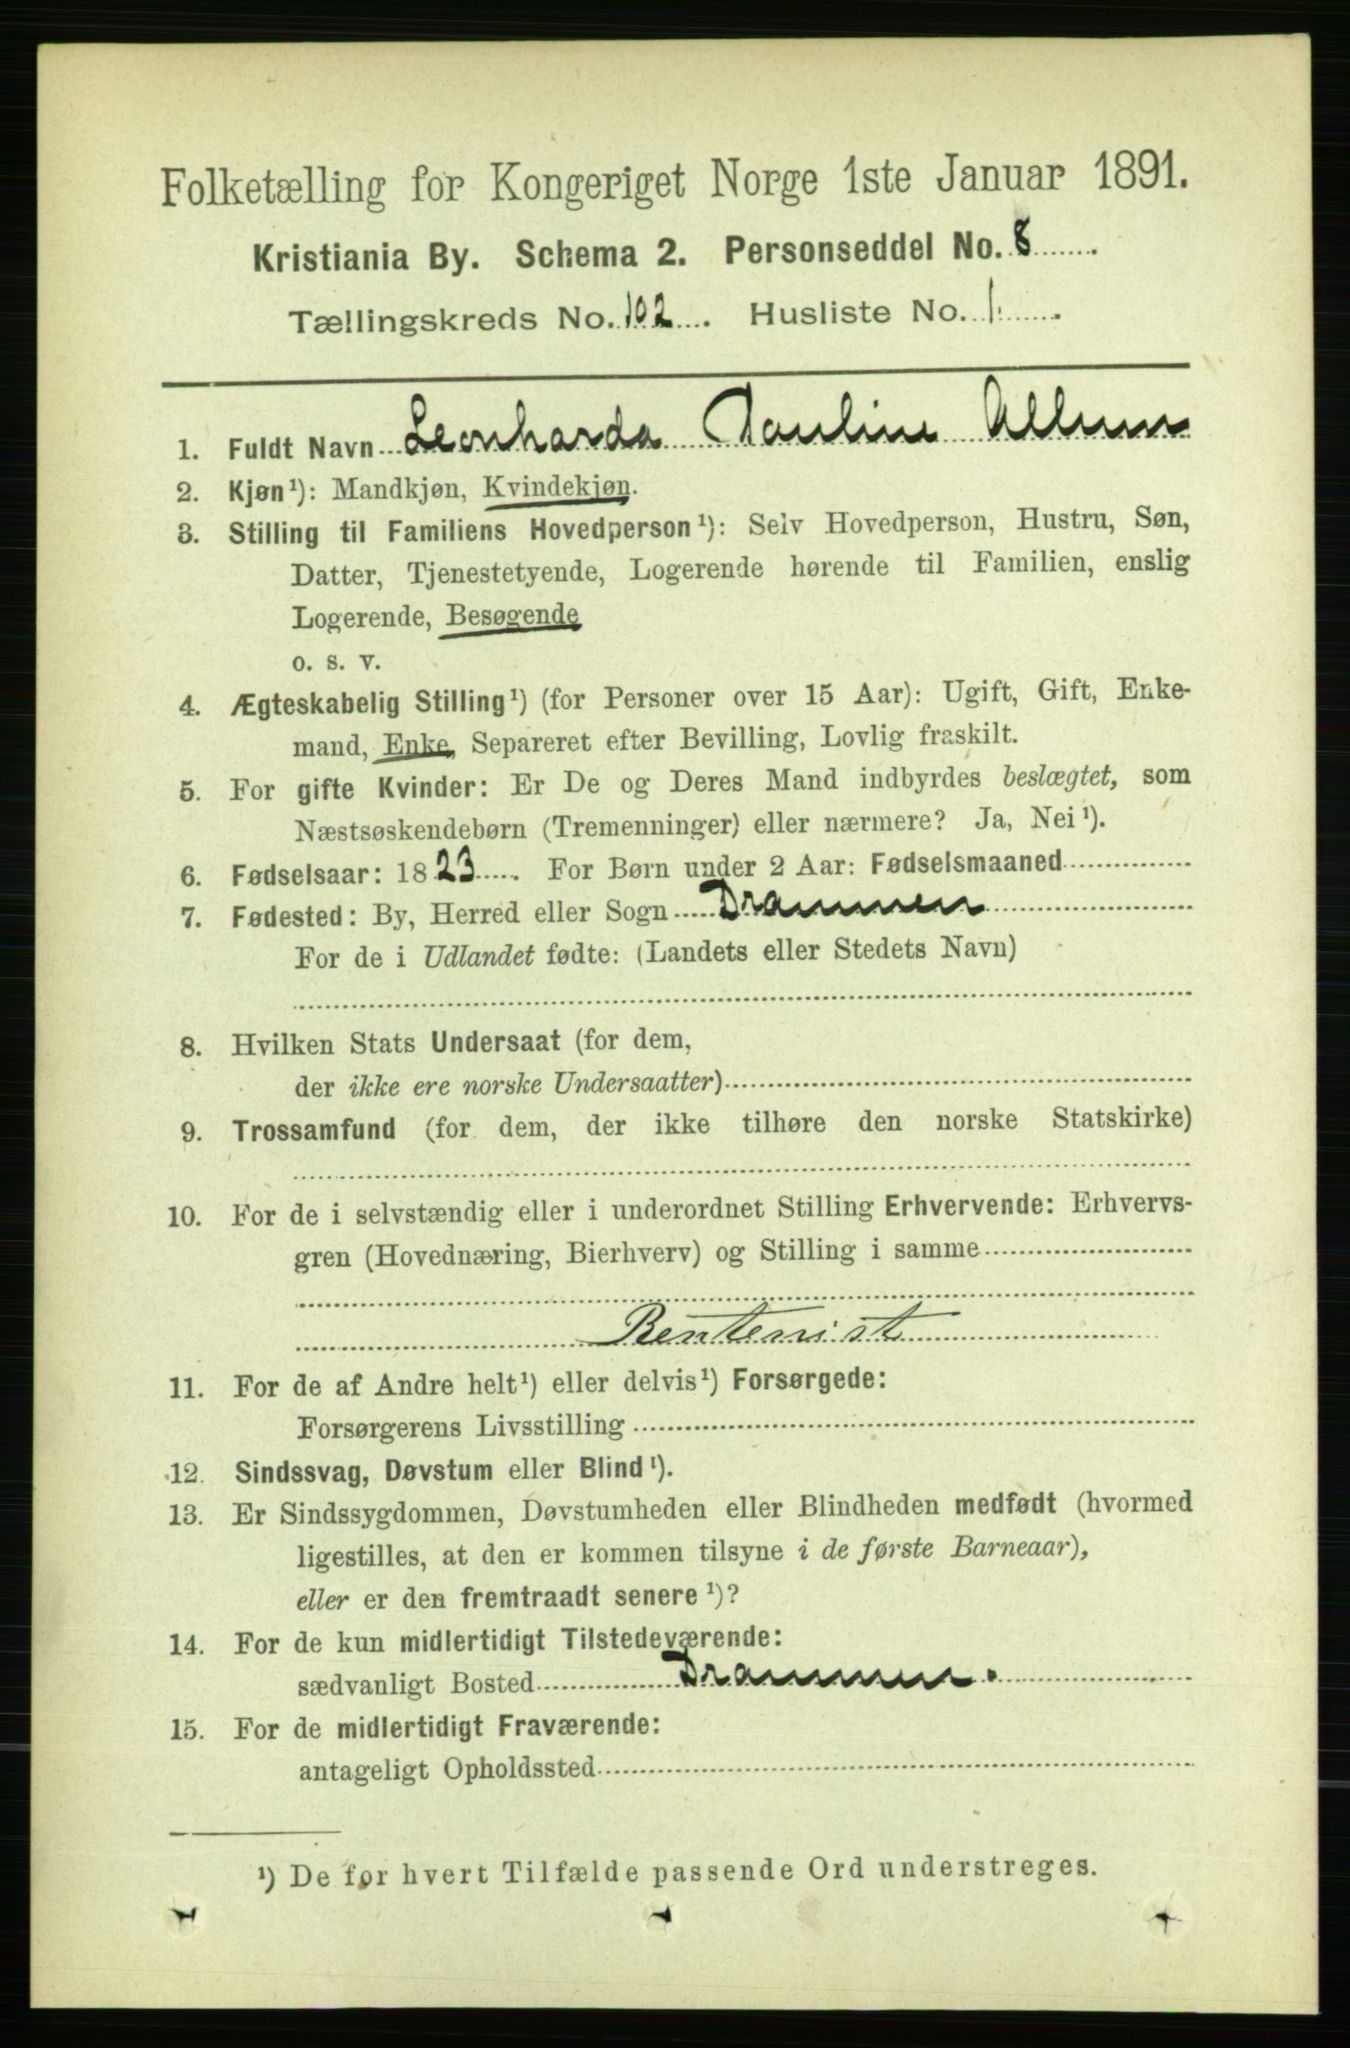 Folketælling for Kongeriget Norge 1ste Januar 1891.
Kristiania By. Schema 2. Personseddel No. 8
Tællingskreds No. 102. Husliste No. 1.
1. Fuldt Navn Leonharda Pauline Allum
2. Kjøn¹): Mandkjøn, Kvindekjøn.
3. Stilling til Familiens Hovedperson¹): Selv Hovedperson, Hustru, Søn,
Datter, Tjenestetyende, Logerende hørende til Familien, enslig
Logerende, Besøgende
o. s. v.
4. Ægteskabelig Stilling¹) (for Personer over 15 Aar): Ugift, Gift, Enke-
mand, Enke, Separeret efter Bevilling, Lovlig fraskilt.
5. For gifte Kvinder: Er De og Deres Mand indbyrdes beslægtet, som
Næstsøskendebørn (Tremenninger) eller nærmere? Ja, Nei¹).
6. Fødselsaar: 1823. For Børn under 2 Aar: Fødselsmaaned
7. Fødested: By, Herred eller Sogn Drammen
For de i Udlandet fødte: (Landets eller Stedets Navn)
8. Hvilken Stats Undersaat (for dem,
der ikke ere norske Undersaatter)
9. Trossamfund (for dem, der ikke tilhøre den norske Statskirke)
10. For de i selvstændig eller i underordnet Stilling Erhvervende: Erhvervs-
gren (Hovednæring, Bierhverv) og Stilling i samme
Rentenist
11. For de af Andre helt¹) eller delvis¹) Forsørgede:
Forsørgerens Livsstilling
12. Sindssvag, Døvstum eller Blind¹).
13. Er Sindssygdommen, Døvstumheden eller Blindheden medfødt (hvormed
ligestilles, at den er kommen tilsyne i de første Barneaar),
eller er den fremtraadt senere¹)?
14. For de kun midlertidigt Tilstedeværende:
sædvanligt Bosted Drammen.
15. For de midlertidigt Fraværende:
antageligt Opholdssted
¹) De for hvert Tilfælde passende Ord understreges.